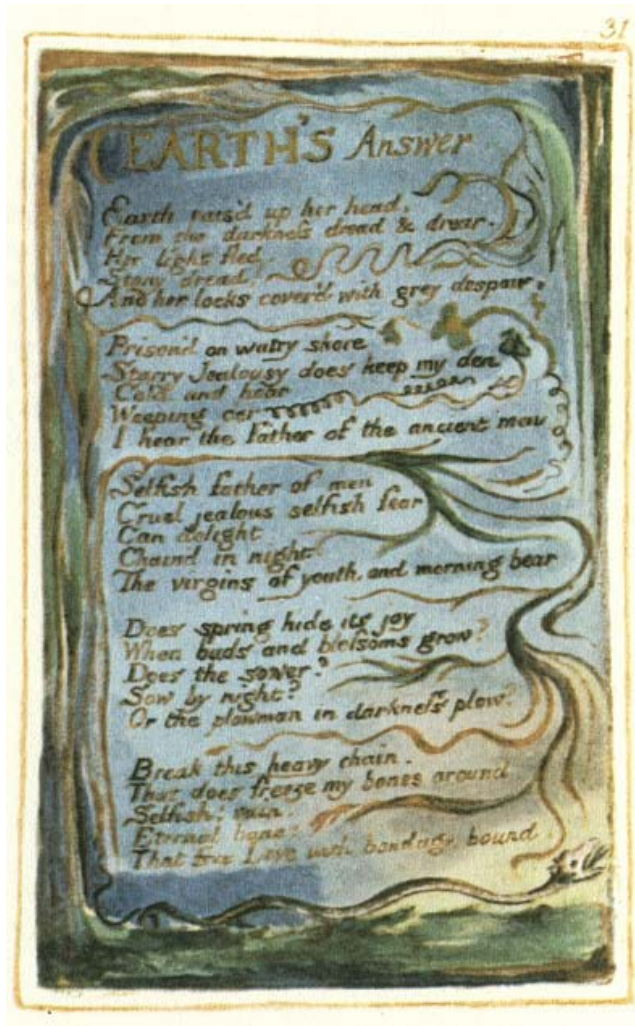 31
EARTH'S Answer
Earth rais'd up her head,
From the darkness dread & drear.
Her light fled:
Stony dread!
And her locks cover'd with grey despair.
Prison'd on watry shore
Starry Jealousy does keep my den
Cold and hoar
Weeping o'er
I hear the father of the ancient men
Selfish father of men
Cruel jealous selfish fear
Can delight
Chain'd in night
The virgins of youth and morning bear
Does spring hide its joy
When buds and blossoms grow?
Does the sower?
Sow by night?
Or the plowman in darkness plow?
Break this heavy chain.
That does freeze my bones around
Selfish! vain.
Eternal bane!
That free Love with bondage bound.